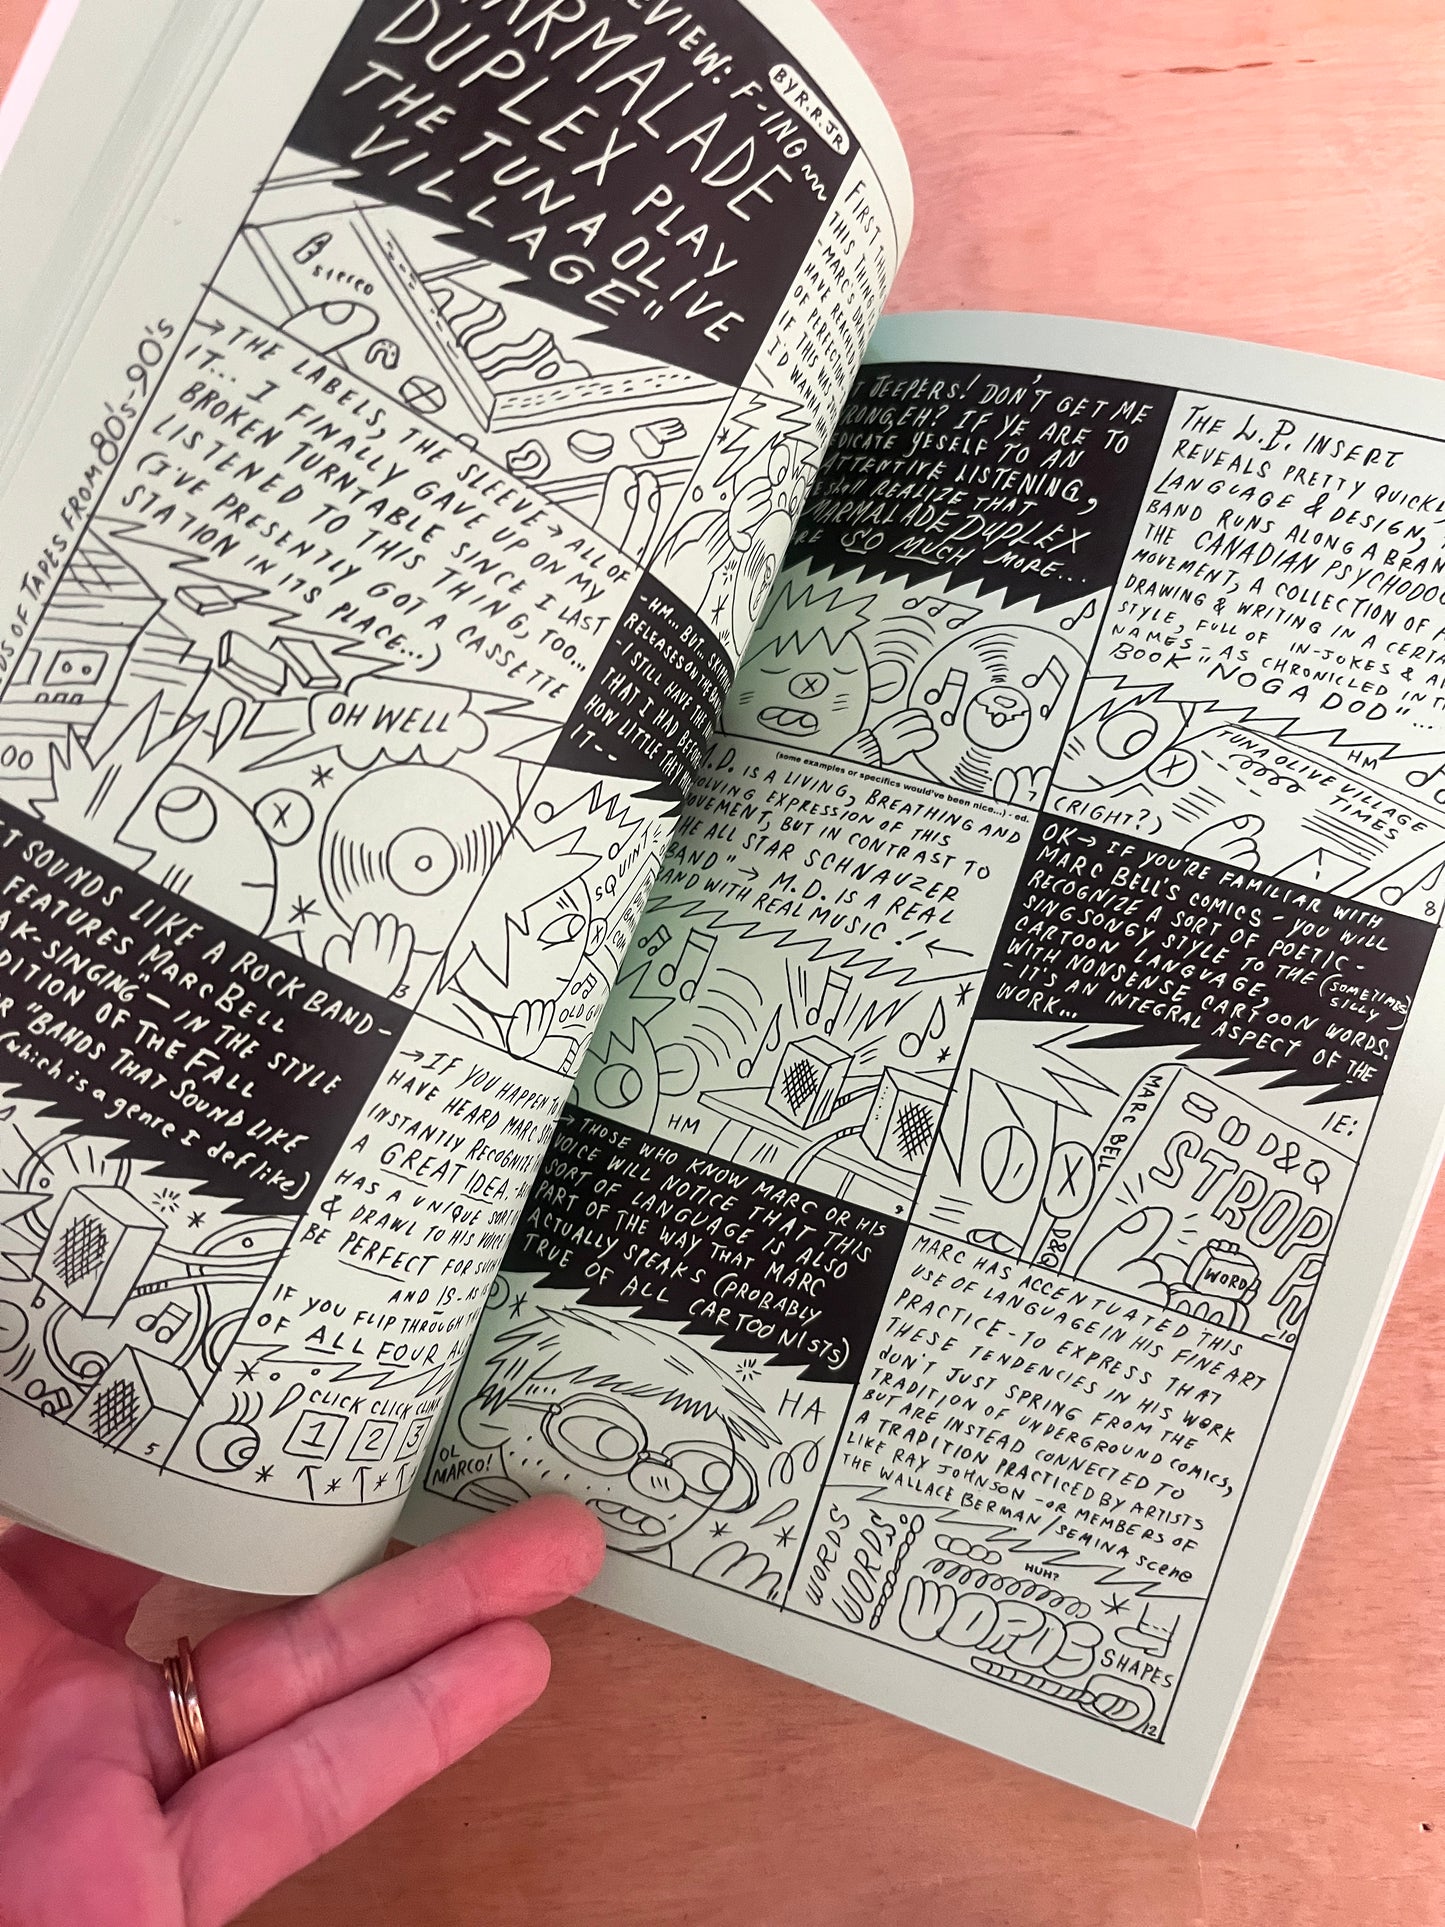 REVIEW: F-ING
MARMALADE
DUPLEX PLAY
THE TUNA OLIVE
VILLAGE"
BY R.R. JR
stereo
FIRST THING
THIS THING
-MARC'S DRAWL
HAVE REACHED A
OF PERFECTION
IF THIS WAS
I'D WANT
→ THE LABELS, THE SLEEVE → ALL OF
IT... I FINALLY GAVE UP ON MY
BROKEN TURNTABLE SINCE I LAST
LISTENED TO THIS THING, TOO...
(I'VE PRESENTLY GOT A CASSETTE
STATION IN ITS PLACE...)
OF TAPES FROM 80's-90's
OH WELL
3
-HM... BUT...
RELEASES ON THE
-I STILL HAVE THE
THAT I HAD BEFORE
HOW LITTLE THEY
IT--
SQUINT
OLD
IT SOUNDS LIKE A ROCK BAND-
FEATURES MARC BELL
-SINGING"- IN THE STYLE
TRADITION OF THE FALL
OR "BANDS THAT SOUND LIKE
(which is a genre I def like)
5
→ IF YOU HAPPEN TO
HAVE HEARD MARC
INSTANTLY RECOGNIZE
A GREAT IDEA.
HAS A UNIQUE SORT
& DRAWL TO HIS VOICE
BE PERFECT FOR SUCH
AND IS- AS
IF YOU FLIP THROUGH
OF ALL FOUR
CLICK CLICK CLICK
1 2 3
JEEPERS! DON'T GET ME
WRONG, EH? IF YE ARE TO
DEDICATE YESELF TO AN
ATTENTIVE LISTENING,
YE shall REALIZE THAT
MARMALADE DUPLEX
ARE SO MUCH MORE...
7
THE L.P. INSERT
REVEALS PRETTY QUICKLY,
LANGUAGE & DESIGN,
BAND RUNS ALONG A BRANCH
THE CANADIAN PSYCHODOODLE
MOVEMENT, A COLLECTION OF
DRAWING & WRITING IN A CERTAIN
STYLE, FULL OF IN-JOKES &
NAMES- AS CHRONICLED IN THE
BOOK "NOG A DOD"...
HM
TUNA OLIVE VILLAGE
TIMES
(RIGHT?)
8
(some examples or specifics would've been nice...) - ed.
M.D. IS A LIVING, BREATHING AND
EVOLVING EXPRESSION OF THIS
MOVEMENT, BUT IN CONTRAST TO
THE ALL STAR SCHNAUZER
BAND" → M.D. IS A REAL
BAND WITH REAL MUSIC! ←
HM
9
OK → IF YOU'RE FAMILIAR WITH
MARC BELL'S COMICS - YOU WILL
RECOGNIZE A SORT OF POETIC-
SINGSONGY STYLE TO THE (SOMETIMES
SILLY)
CARTOON LANGUAGE,
WITH NONSENSE CARTOON WORDS.
- IT'S AN INTEGRAL ASPECT OF THE
WORK...
IE:
MARC BELL
D&Q
D&Q
STROPP
WORD
10
→ THOSE WHO KNOW MARC OR HIS
VOICE WILL NOTICE THAT THIS
SORT OF LANGUAGE IS ALSO
PART OF THE WAY THAT MARC
ACTUALLY SPEAKS (PROBABLY
TRUE OF ALL CARTOONISTS)
HA
OL
MARCO!
11
MARC HAS ACCENTUATED THIS
USE OF LANGUAGE IN HIS FINE ART
PRACTICE - TO EXPRESS THAT
THESE TENDENCIES IN HIS WORK
DON'T JUST SPRING FROM THE
TRADITION OF UNDERGROUND COMICS,
BUT ARE INSTEAD CONNECTED TO
A TRADITION PRACTICED BY ARTISTS
LIKE RAY JOHNSON -OR MEMBERS OF
THE WALLACE BERMAN/SEMINA scene
WORDS
WORDS
HUH?
WORDS
SHAPES
12